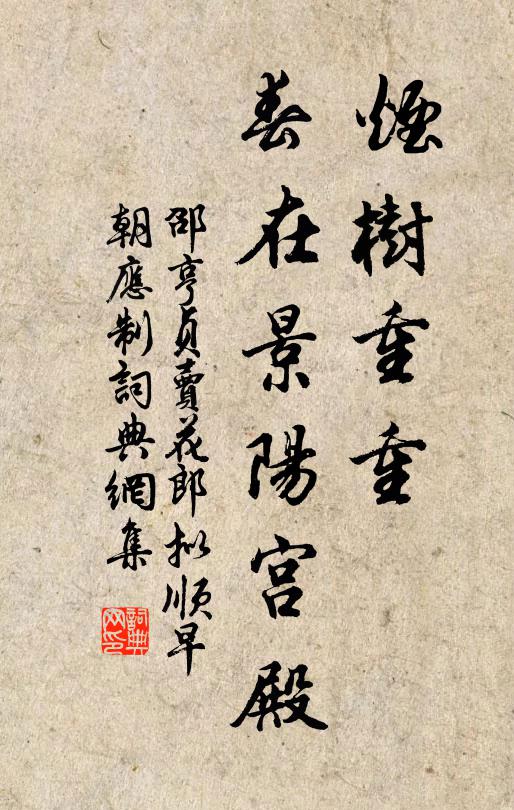 煙樹重重
春在景陽宮殿
邵亨貞賣花郎擬順早
朝應制詞典網集
詞典
网印